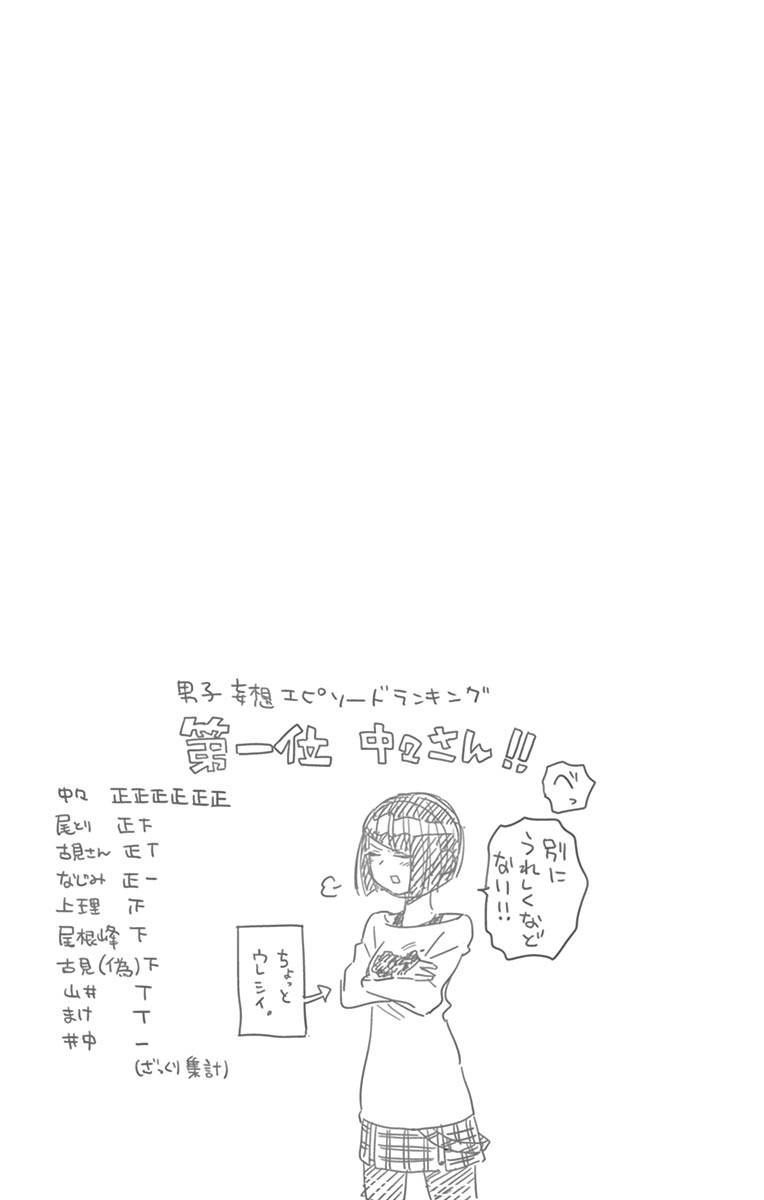 男子妄想エピソードランキング
第一位 中々さん!!
べっ
別に
うれしくなど
ない!!
ちょっと
ウレシイ。
中々 正正正正正正
尾とり 正下
古見さん 正T
なじみ 正一
上理 正
尾根峰 下
古見(偽)下
山井 T
まけ T
井中 一
(ざっくり集計)